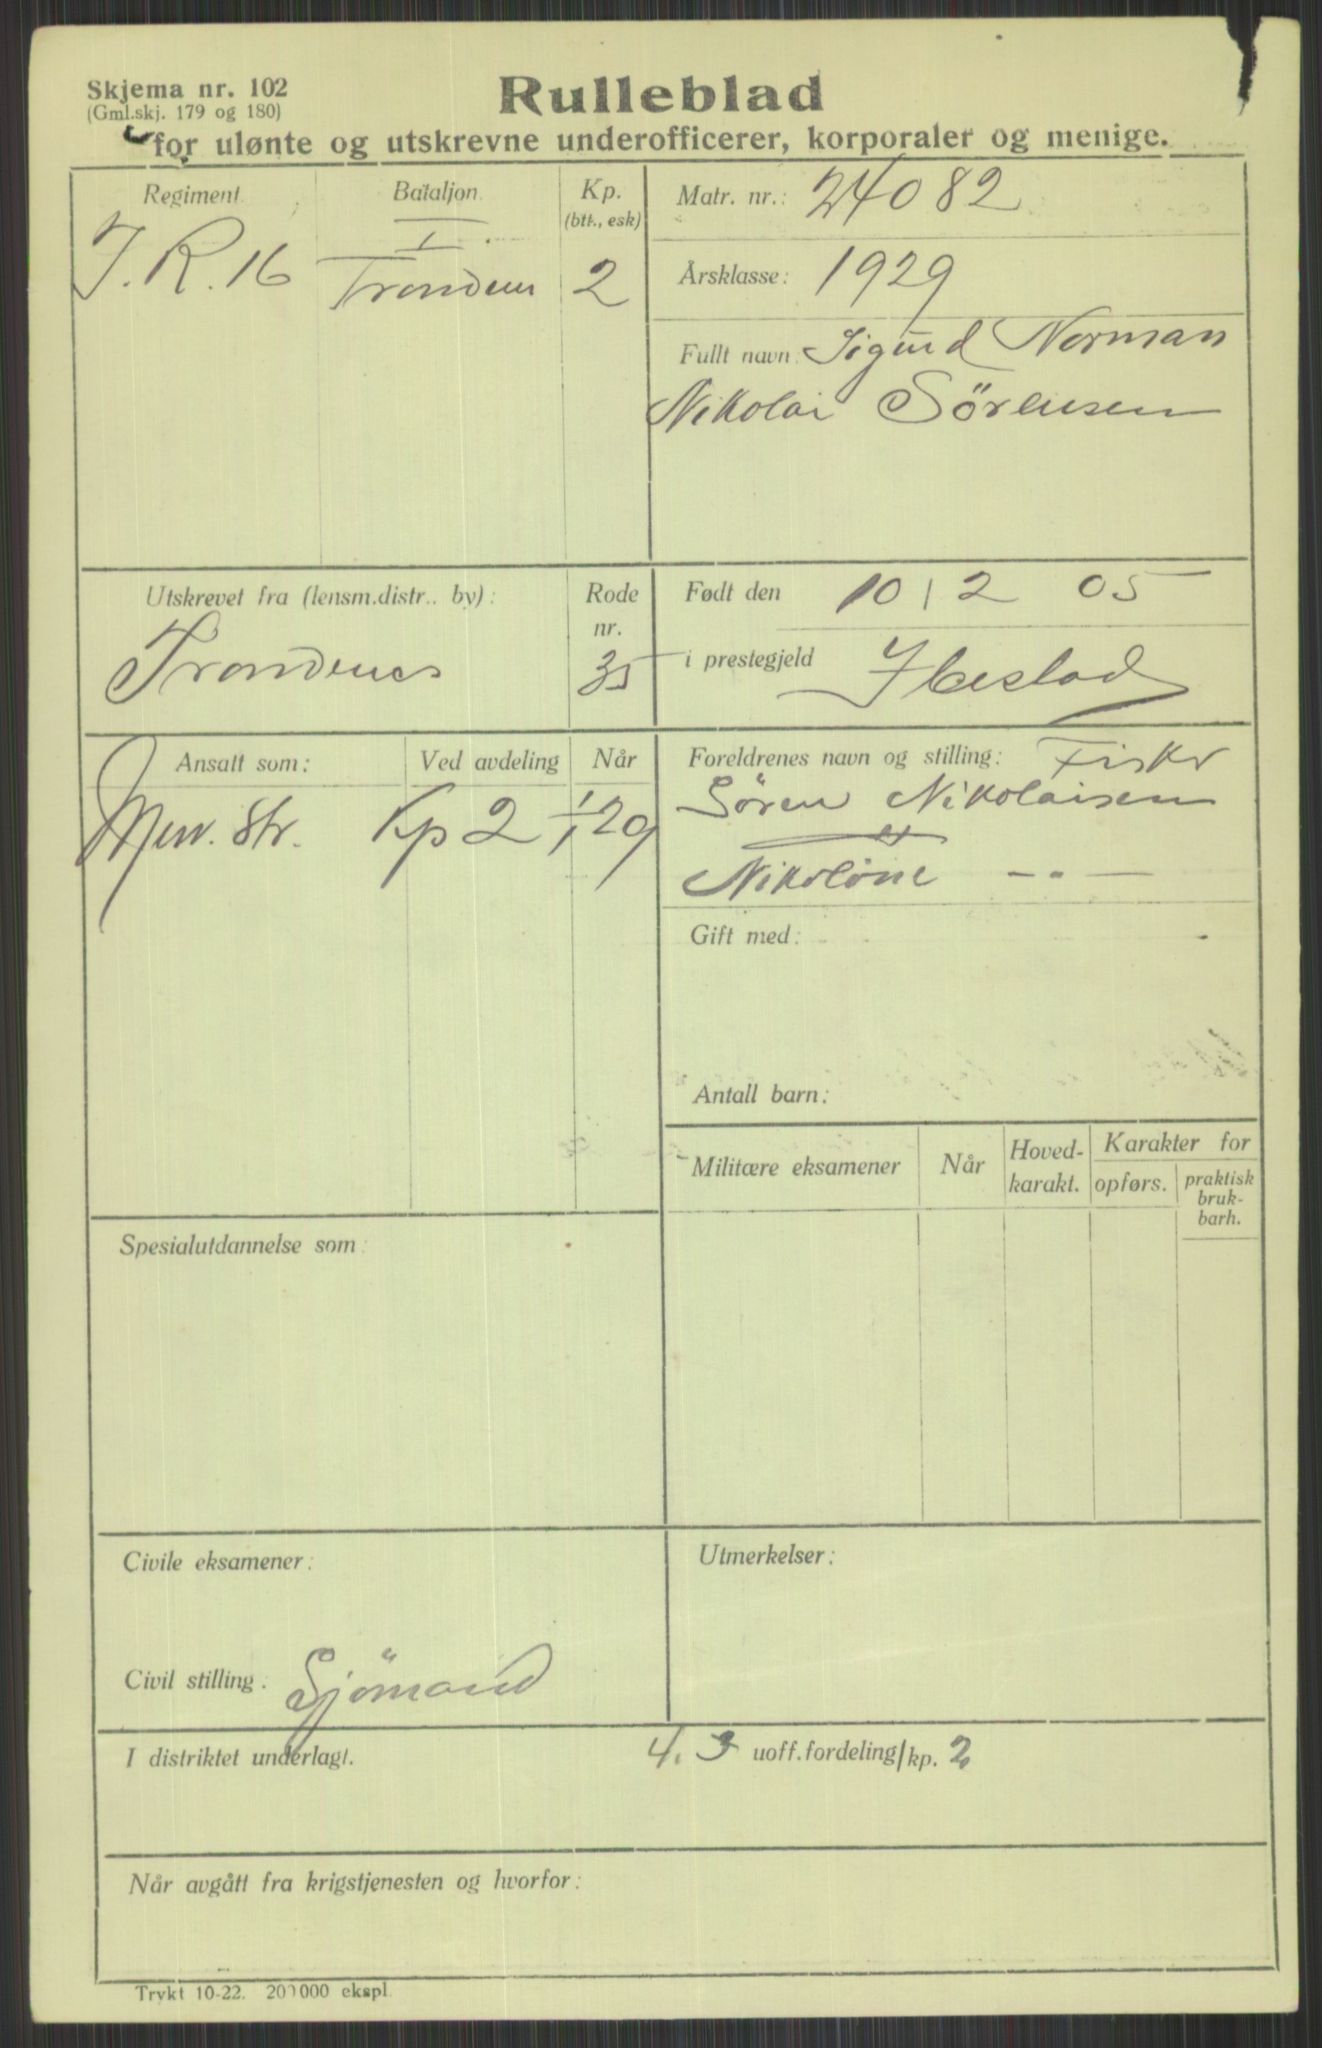 Skjema nr. 102
(Gml.skj. 179 og 180)
Rulleblad
for ulønte og utskrevne underofficerer, korporaler og menige.
Regiment
Bataljon
Kp.
(btt., esk)
J. R. 16
I
Trondenes
2
Matr. nr.: 24082
Årsklasse: 1929
Fullt navn Sigurd Norman
Nikolai Sörensen
Utskrevet fra (lensm.distr.. by):
Rode
nr.
Trondenes
35
Født den 10/2 05
i prestegjeld Ibestad
Ansatt som:
Ved avdeling
Når
Men. Str. Kp 2 1/1 29
Foreldrenes navn og stilling: Fisker
Sören Nikolaisen
Nikoline —"—
Gift med:
Antall barn:
Militære eksamener
Når
Hoved-
karakt.
Karakter for
opførs.
praktisk
bruk-
barh.
Spesialutdannelse som:
Civile eksamener:
Utmerkelser:
Civil stilling: Sjömand
I distriktet underlagt.
4. 3 uoff.fordeling/kp. 2
Når avgått fra krigstjenesten og hvorfor:
Trykt 10-22. 200000 ekspl.